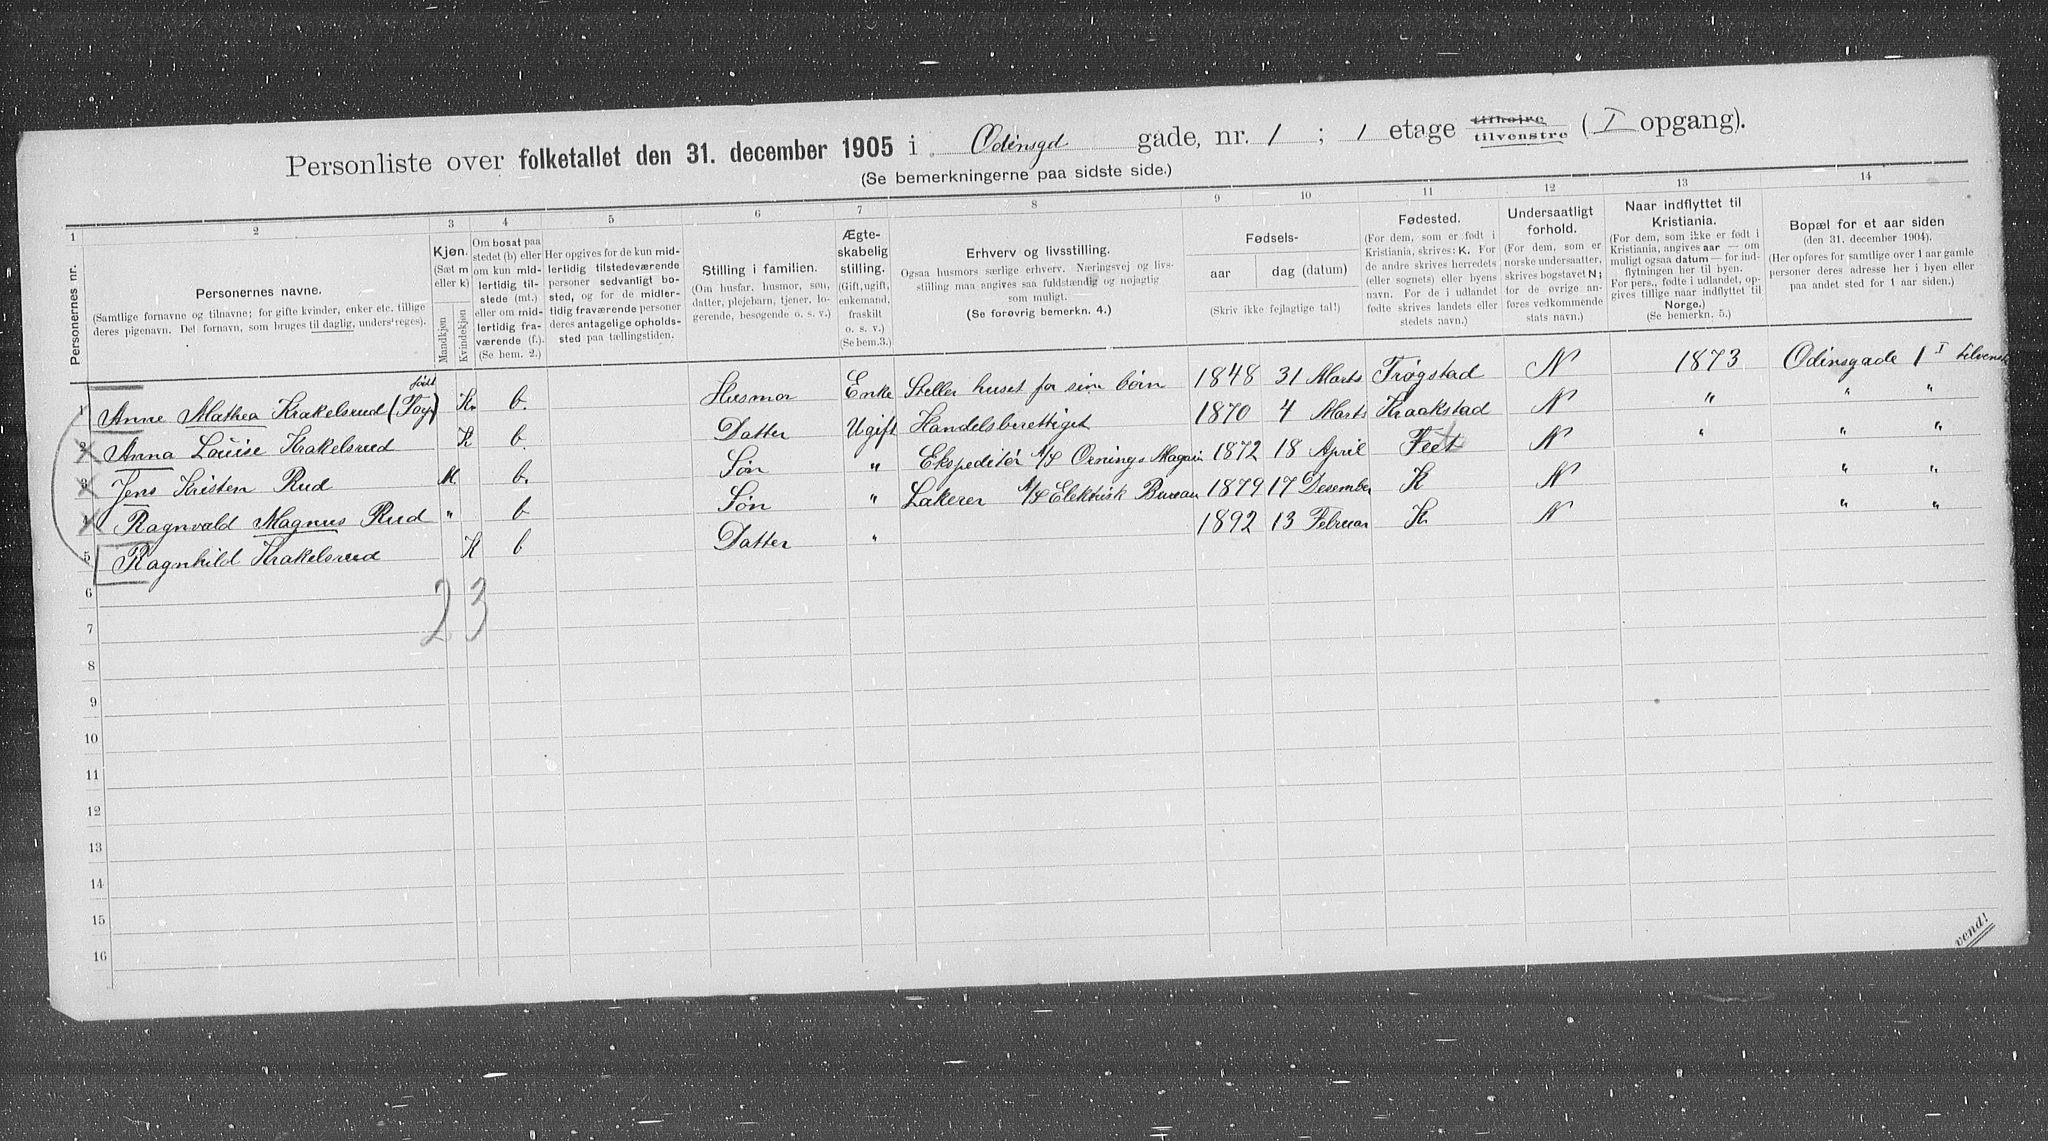 Personliste over folketallet den 31. december 1905 i Odinsgd gade, nr. 1 ; 1 etage tilhøire tilvenstre ( I opgang).
(Se bemerkningerne paa sidste side.)
1 2 3 4 5 6 7 8 9 10 11 12 13 14
Personernes nr.
Personernes navne.
(Samtlige fornavne og tilnavne; for gifte kvinder, enker etc. tillige deres pigenavn. Det fornavn, som bruges til daglig, understreges).
Kjøn.
(Sæt m eller k)
Mandkjøn
Kvindekjøn
Om bosat paa stedet (b) eller om kun midlertidig tilstede (mt.) eller om midlertidig fraværende (f.). (Se bem. 2.)
Her opgives for de kun midlertidig tilstedeværende personer sedvanligt bosted, og for de midlertidig fraværende personer deres antagelige opholdssted paa tællingstiden.
Stilling i familien.
(Om husfar, husmor, søn, datter, plejebarn, tjener, logerende, besøgende o. s. v.)
Ægteskabelig stilling.
(Gift, ugift, enkemand, fraskilt o. s. v.) (Se bem. 3.)
Erhverv og livsstilling.
Ogsaa husmors særlige erhverv. Næringsvej og livsstilling maa angives saa fuldstændig og nøjagtig som muligt.
(Se forøvrig bemerkn. 4.)
Fødsels-
aar dag (datum)
(Skriv ikke fejlagtige tal!)
Fødested.
(For dem, som er født i Kristiania, skrives: K. For de andre skrives herredets (eller sognets) eller byens navn. For de i udlandet fødte skrives landets eller stedets navn.)
Undersaatligt forhold.
(For dem, som er norske undersaatter, skrives bogstavet N; for de øvrige anføres vedkommende stats navn.)
Naar indflyttet til Kristiania.
(For dem, som ikke er født i Kristiania, angives aar — om muligt ogsaa datum — for indflytningen her til byen. For pers., fødte i udlandet, opgives tillige naar indflyttet til Norge.)
(Se bemerkn. 5.)
Bopæl for et aar siden
(den 31. december 1904).
(Her opføres for samtlige over 1 aar gamle personer deres adresse her i byen eller paa andet sted for 1 aar siden.)
1 Anne Mathea Krakelsrud (født Foyn) K. b. Husmor Enke Steller huset for sine børn 1848 31 Marts Trøgstad N 1873 Odinsgade 1 I tilvenstre
2 Anna Louise Krakelsrud K b. Datter Ugift Handelsberettiget 1870 4 Marts Kraakstad N " " "
3 Jens Kristen Rud M b. Søn " Ekspeditør A/S Ornings Magasin 1872 18 April Feet N " " "
4 Ragnvald Magnus Rud " b Søn " Lakerer A/S Elektrisk Bureau 1879 17 Desember K N " "
5 Ragnhild Krakelsrud K b Datter " 1892 13 Februar K. N " "
2 3
6
7
8
9
10
11
12
13
14
15
16
vend!